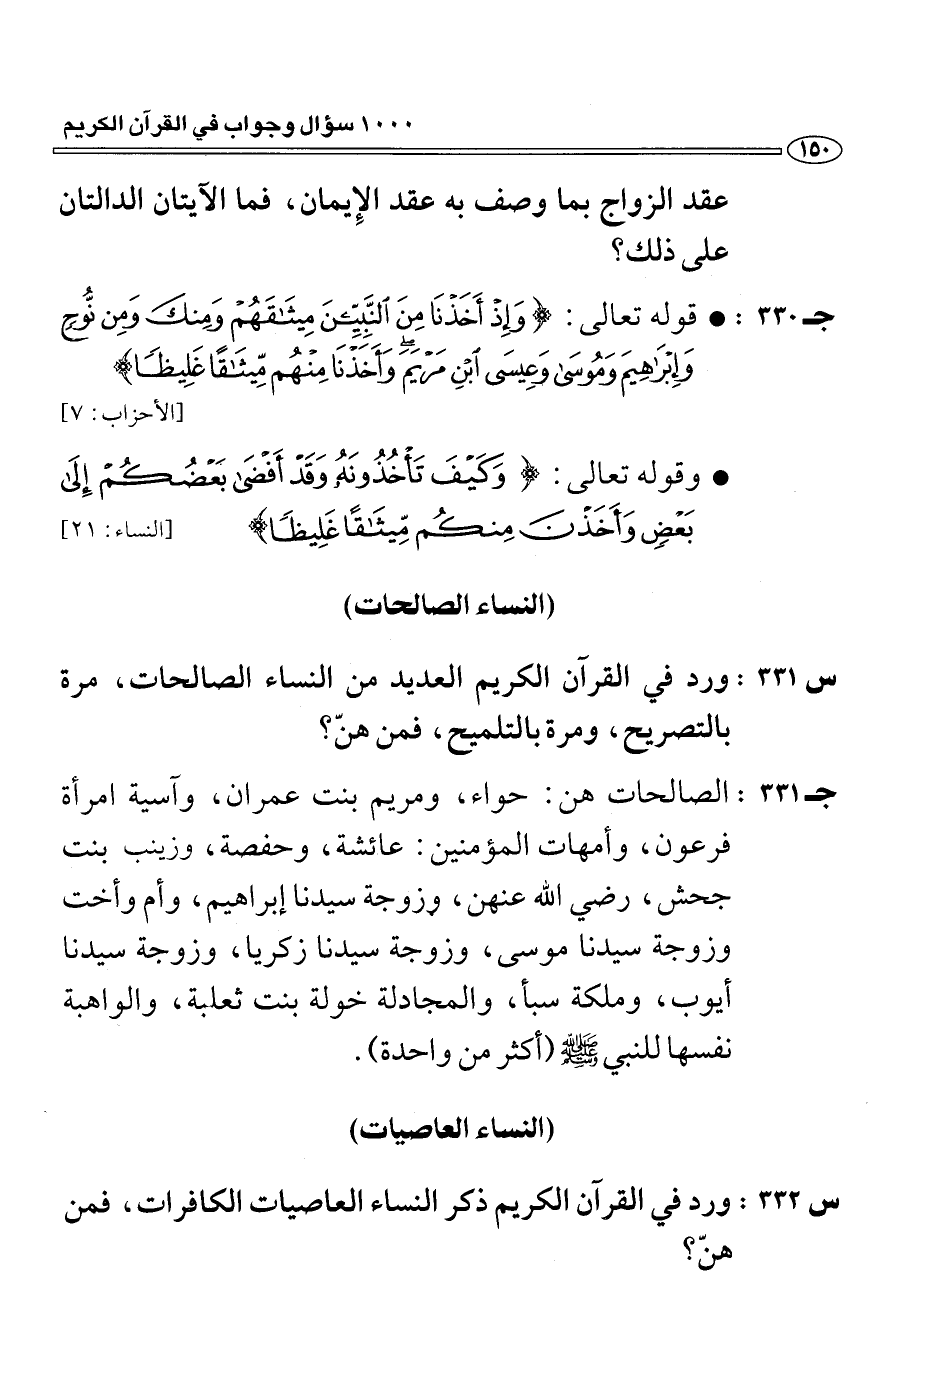 ١٠٠٠ سؤال وجواب في القرآن الكريم
١٥٠
عقد الزواج بما وصف به عقد الإيمان، فما الآيتان الدالتان
على ذلك؟
جـ ٣٣٠ : ● قوله تعالى: ﴿ وَإِذْ أَخَذْنَا مِنَ ٱلنَّبِيِّـۧنَ مِيثَٰقَهُمْ وَمِنكَ وَمِن نُّوحٍ
وَإِبْرَٰهِيمَ وَمُوسَىٰ وَعِيسَى ٱبْنِ مَرْيَمَ ۖ وَأَخَذْنَا مِنْهُم مِّيثَٰقًا غَلِيظًا ﴾
[الأحزاب: ٧]
● وقوله تعالى: ﴿ وَكَيْفَ تَأْخُذُونَهُۥ وَقَدْ أَفْضَىٰ بَعْضُكُمْ إِلَىٰ
بَعْضٍ وَأَخَذْنَ مِنكُم مِّيثَٰقًا غَلِيظًا ﴾ [النساء: ٢١]
(النساء الصالحات)
س ٣٣١ : ورد في القرآن الكريم العديد من النساء الصالحات، مرة
بالتصريح، ومرة بالتلميح، فمن هنّ؟
جـ ٣٣١ : الصالحات هن: حواء، ومريم بنت عمران، وآسية امرأة
فرعون، وأمهات المؤمنين: عائشة، وحفصة، وزينب بنت
جحش، رضي الله عنهن، وزوجة سيدنا إبراهيم، وأم وأخت
وزوجة سيدنا موسى، وزوجة سيدنا زكريا، وزوجة سيدنا
أيوب، وملكة سبأ، والمجادلة خولة بنت ثعلبة، والواهبة
نفسها للنبي ﷺ (أكثر من واحدة).
(النساء العاصيات)
س ٣٣٢ : ورد في القرآن الكريم ذكر النساء العاصيات الكافرات، فمن
هنّ؟